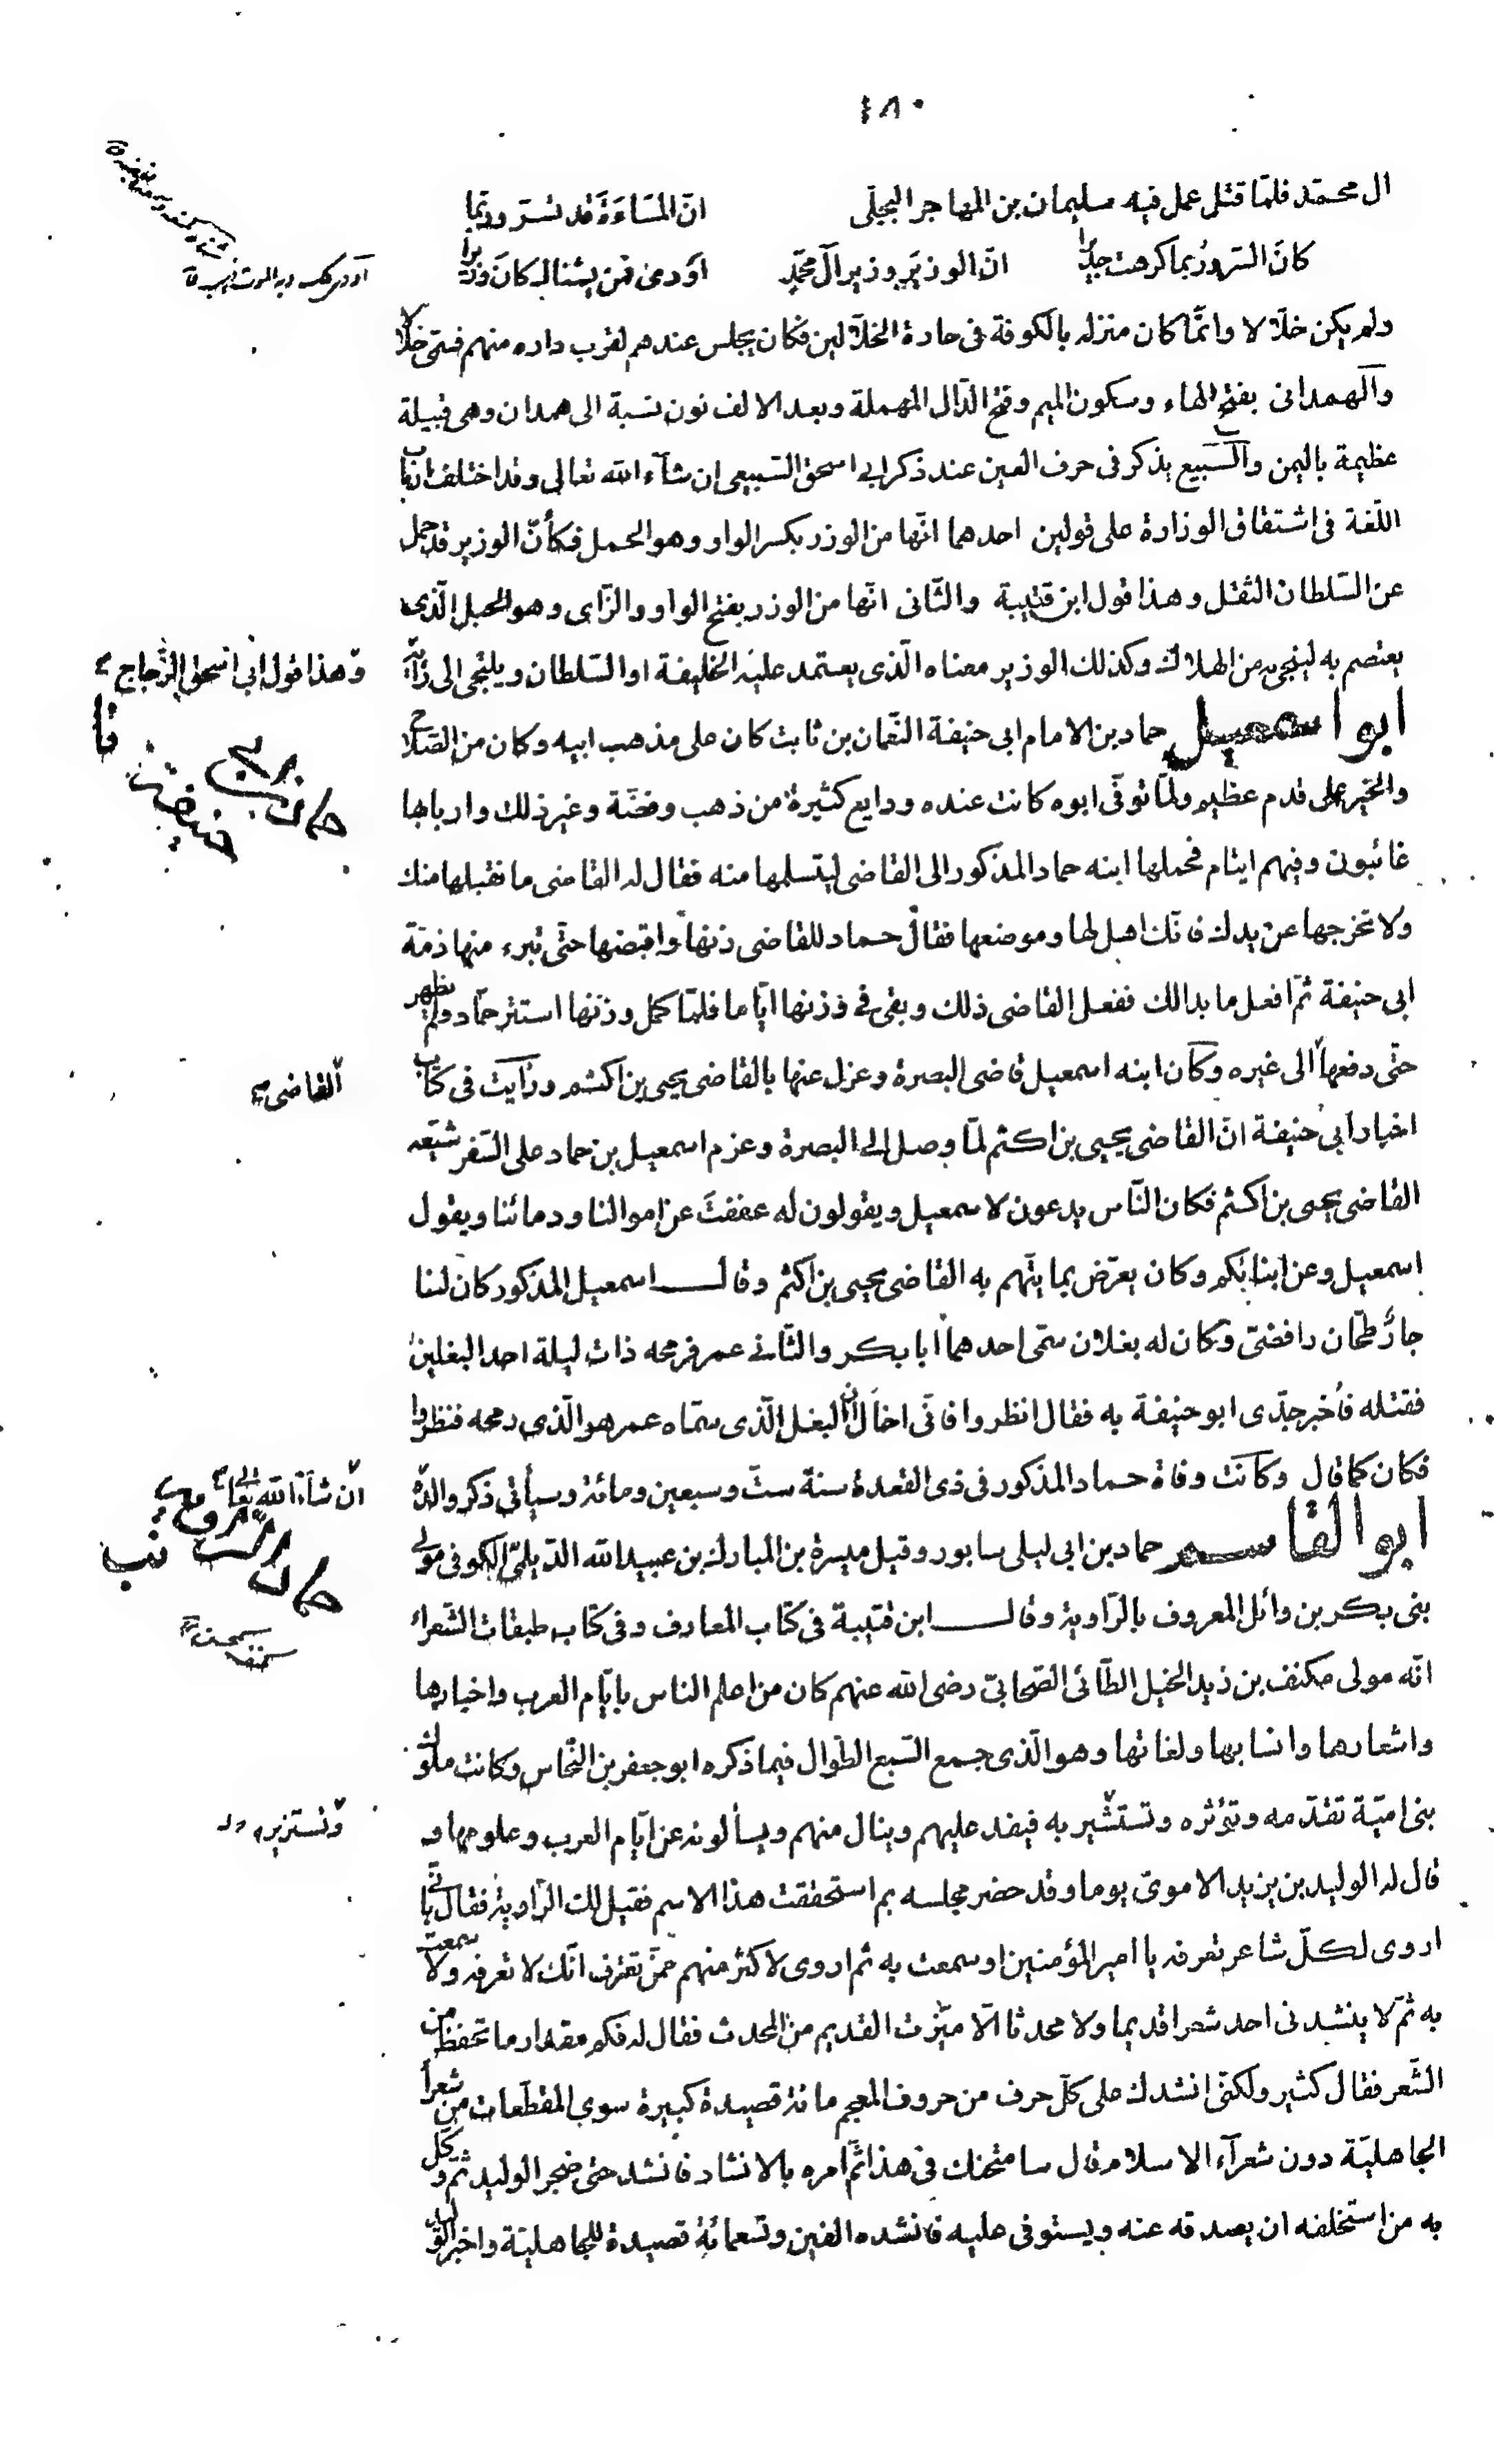 ٤٨٠
ال محمّد فلمّا قتل عمل فيه سليمان بن المهاجر البجلّى انّ المسَاءَةَ قد تسرّ وربّما
كانَ السّرورُ بما كرهت جديرًا انّ الوزيرَ وزيرَ آلَ محمّدٍ اوَدى فمن يشناك كانَ وزيرا
ولم يكن خلّالا وانّما كان منزله بالكوفة فى حارة الخلّالين فكان يجلس عندهم لقرب داره منهم فسمّى خلّالا
والهمدانى بفتح الهاء وسكون الميم وفتح الدّال المهملة وبعد الالف نون نسبة الى همدان وهى قبيلة
عظيمة باليمن والسّبيع يذكر فى حرف العين عند ذكر ابى اسحق السّبيعى ان شآء الله تعالى وقد اختلف ارباب
اللّغة فى اشتقاق الوزارة على قولين احدهما انّها من الوزر بكسر الواو وهو الحمل فكأنّ الوزير قد حمل
عن السّلطان الثقل وهذا قول ابن قتيبة والثّانى انّها من الوزر بفتح الواو والزّاى وهو الجبل الّذى
يعتصم به لينجى من الهلاك وكذلك الوزير معناه الّذى يعتمد عليه الخليفة او السّلطان ويلتجى الى رأيه
وهذا قول ابى اسحق الزّجاج
ابو اسمعيل حماد بن الامام ابى حنيفة النّعمان بن ثابت كان على مذهب ابيه وكان من الصّلاح
والخير على قدم عظيم ولمّا توفّى ابوه كانت عنده ودايع كثيرة من ذهب وفضّة وغير ذلك وارباها
غائبون وفيهم ايتام فحملها ابنه حماد المذكور الى القاضى ليتسلمها منه فقال له القاضى ما نقبلها منك
ولا نخرجها عن يدك فانّك اهل لها وموضعها فقال حماد للقاضى زنها واقبضها حتّى تبرء منها ذمّة
ابى حنيفة ثمّ افعل ما بدالك ففعل القاضى ذلك وبقى فى وزنها ايّاما فلمّا كمل وزنها استتر حمّاد ولم يظهر
حتّى دفعها الى غيره وكان ابنه اسمعيل قاضى البصرة وعزل عنها بالقاضى يحيى بن اكثم ورأيت فى كتاب
القاضى
اخبار ابى حنيفة انّ القاضى يحيى بن اكثم لمّا وصل الى البصرة وعزم اسمعيل بن حماد على السّفر شيّعه
القاضى يحيى بن اكثم فكان النّاس يدعون لاسمعيل ويقولون له عففتَ عن اموالنا ودمائنا ويقول
اسمعيل وعن ابنائكم وكان يعرّض بما يتّهم به القاضى يحيى بن اكثم وقال اسمعيل المذكور كان لنا
جارٌ طحّان رافضىّ وكان له بغلان سمّى احدهما ابا بكر والثّانى عمر فرمحه ذات ليلة احد البغلين
فقتله فأخبر جدّى ابو حنيفة به فقال انظروا فانّى اخال انّ البغل الّذى سمّاه عمر هو الّذى رمحه فنظروا
فكان كما قال وكانت وفاة حماد المذكور فى ذى القعدة سنة ستّ وسبعين ومائة وسيأتى ذكر والدّه
ان شآء الله تعالى
ابو القاسم حماد بن ابى ليلى سابور وقيل ميسرة بن المبارك بن عبيد الله الدّيلمّى الكوفى مولى
بنى بكر بن وائل المعروف بالرّاوية وقال ابن قتيبة فى كتاب المعارف وفى كتاب طبقات الشّعراء
انّه مولى مكنف بن زيد الخيل الطّائى الصّحابىّ رضى الله عنهم كان من اعلم الناس بايّام العرب واخبارها
واشعارها وانسابها ولغاتها وهو الّذى جمع السّبع الطّوال فيما ذكره ابو جعفر بن النّحاس وكانت ملوك
بنى اميّة تقدّمه وتؤثره وتستشير به فيفد عليهم وينال منهم ويسألونه عن ايّام العرب وعلومها و
وتستزيره
قال له الوليد بن يزيد الاموىّ يوما وقد حضر مجلسه بم استحققت هذا الاسم فقيل لك الرّاوية فقال بانّى
اروى لكلّ شاعر تعرفه يا امير المؤمنين او سمعت به ثم اروى لاكثر منهم ممّن تعترف انّك لا تعرفه ولا سمعت
به ثمّ لا ينشدنى احد شعرا قديما ولا محدثا الّا ميّزت القديم من المحدث فقال له فكم مقدار ما تحفظ من
الشّعر فقال كثير ولكنّى انشدك على كلّ حرف من حروف المعجم مائة قصيدة كبيرة سوى المقطّعات من شعرآ
الجاهليّة دون شعرآء الاسلام قال سامتحنك فى هذا ثمّ امره بالانشاد فانشد حتّى ضجر الوليد ثمّ وكّل
به من استخلفه ان يصدقه عنه ويستوفى عليه فانشده الفين وتسعمائة قصيدة للجاهليّة واخبر الوليد